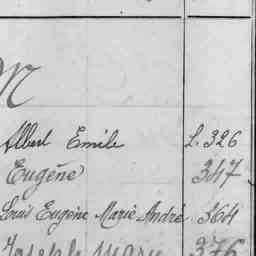 M
Albert Emile L. 326
Eugène 347
Louis Eugène Marie André 364
Joseph Marie 376